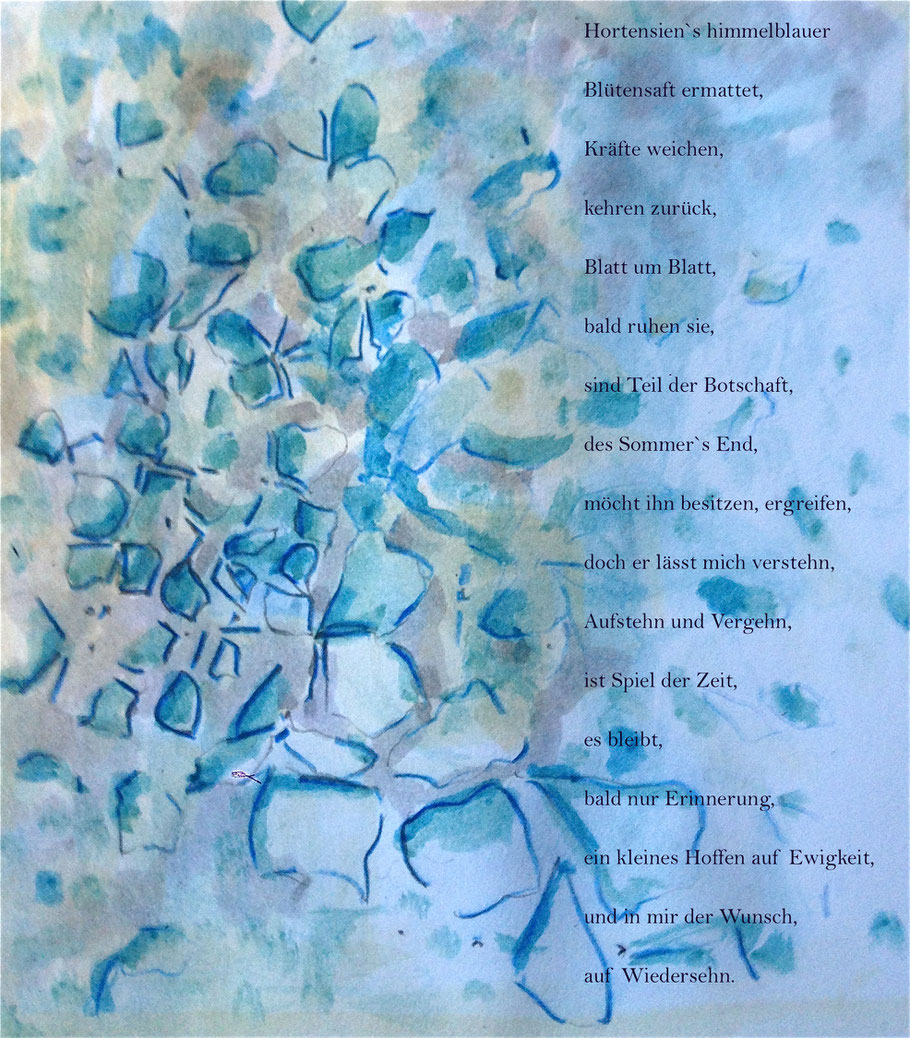 Hortensien`s himmelblauer
Blütensaft ermattet,
Kräfte weichen,
kehren zurück,
Blatt um Blatt,
bald ruhen sie,
sind Teil der Botschaft,
des Sommer`s End,
möcht ihn besitzen, ergreifen,
doch er lässt mich verstehn,
Aufstehn und Vergehn,
ist Spiel der Zeit,
es bleibt,
bald nur Erinnerung,
ein kleines Hoffen auf  Ewigkeit,
und in mir der Wunsch,
auf  Wiedersehn.